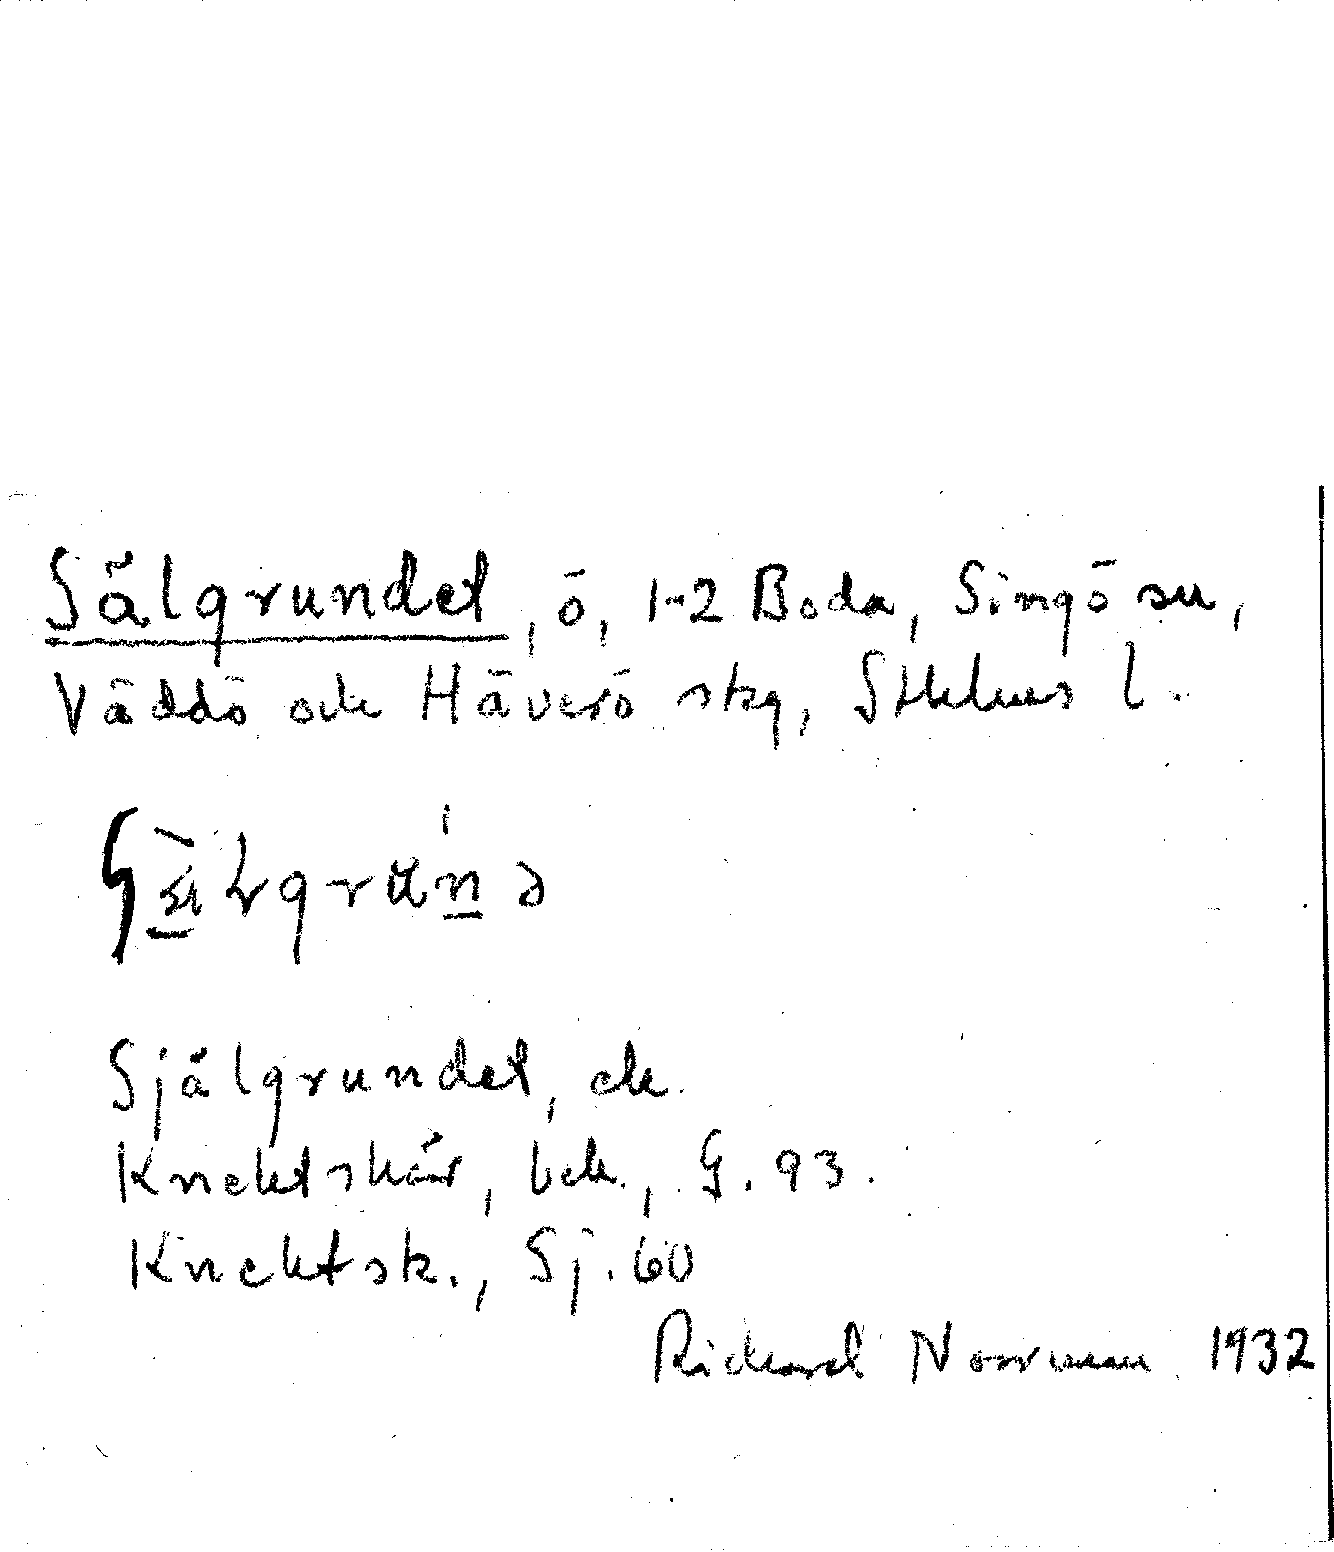 Sälgrundet, ö, 1-2 Boda, Singö sn,
Väddö och Häverö skg, Sthlms l.
Själgrundet, ek.
Knektskär, bek., G. 93.
Knektsk., Sj. 60
Richard Norrman 1932